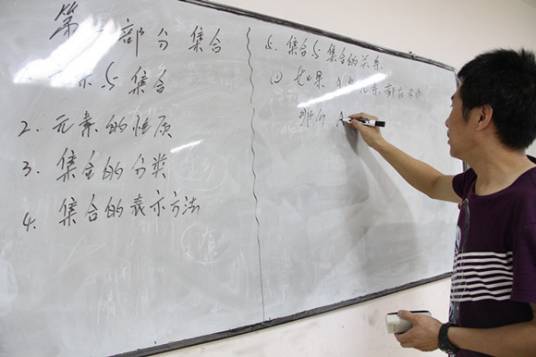 第 部分 集合
与集合
2. 元素的性质
3. 集合的分类
4. 集合的表示方法
5. 集合与集合的关系
① 如果 元素都在
那么 A